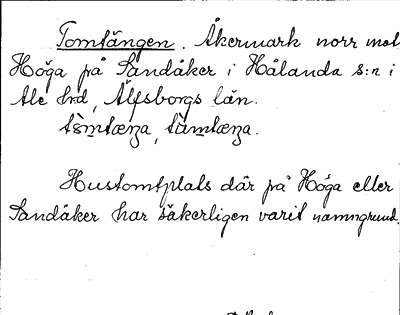 Tomtängen. Åkermark norr mot
Höga på Sandåker i Hålanda s:n i
Ale hrd, Älfsborgs län.
Hustomtplats där på Höga eller
Sandåker har säkerligen varit namngrund.